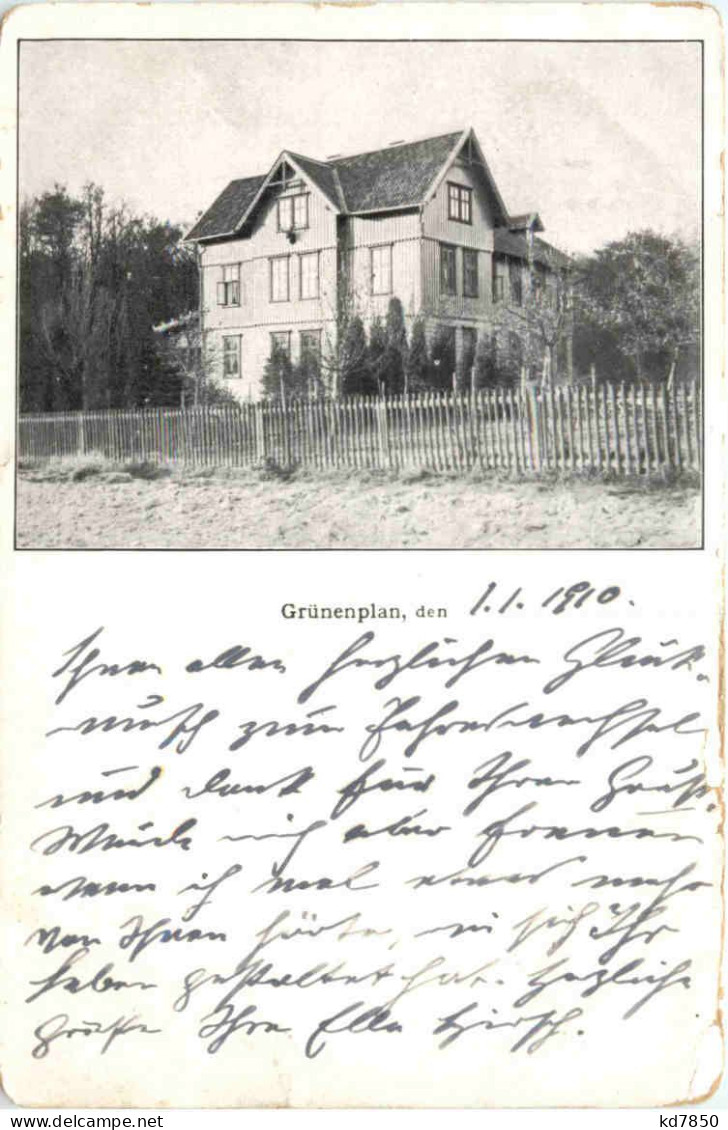 Grünenplan, den 1.1.1910.
Ihnen allen herzlichen Glück-
wunsch zum Jahreswechsel
und Dank für Ihren Gruß.
Würde mich aber freuen
wenn ich mal etwas mehr
von Ihnen hörte, wie sich Ihr
Leben gestaltet hat. Herzliche
Grüße Ihre Ella Hirsch.
kd7850